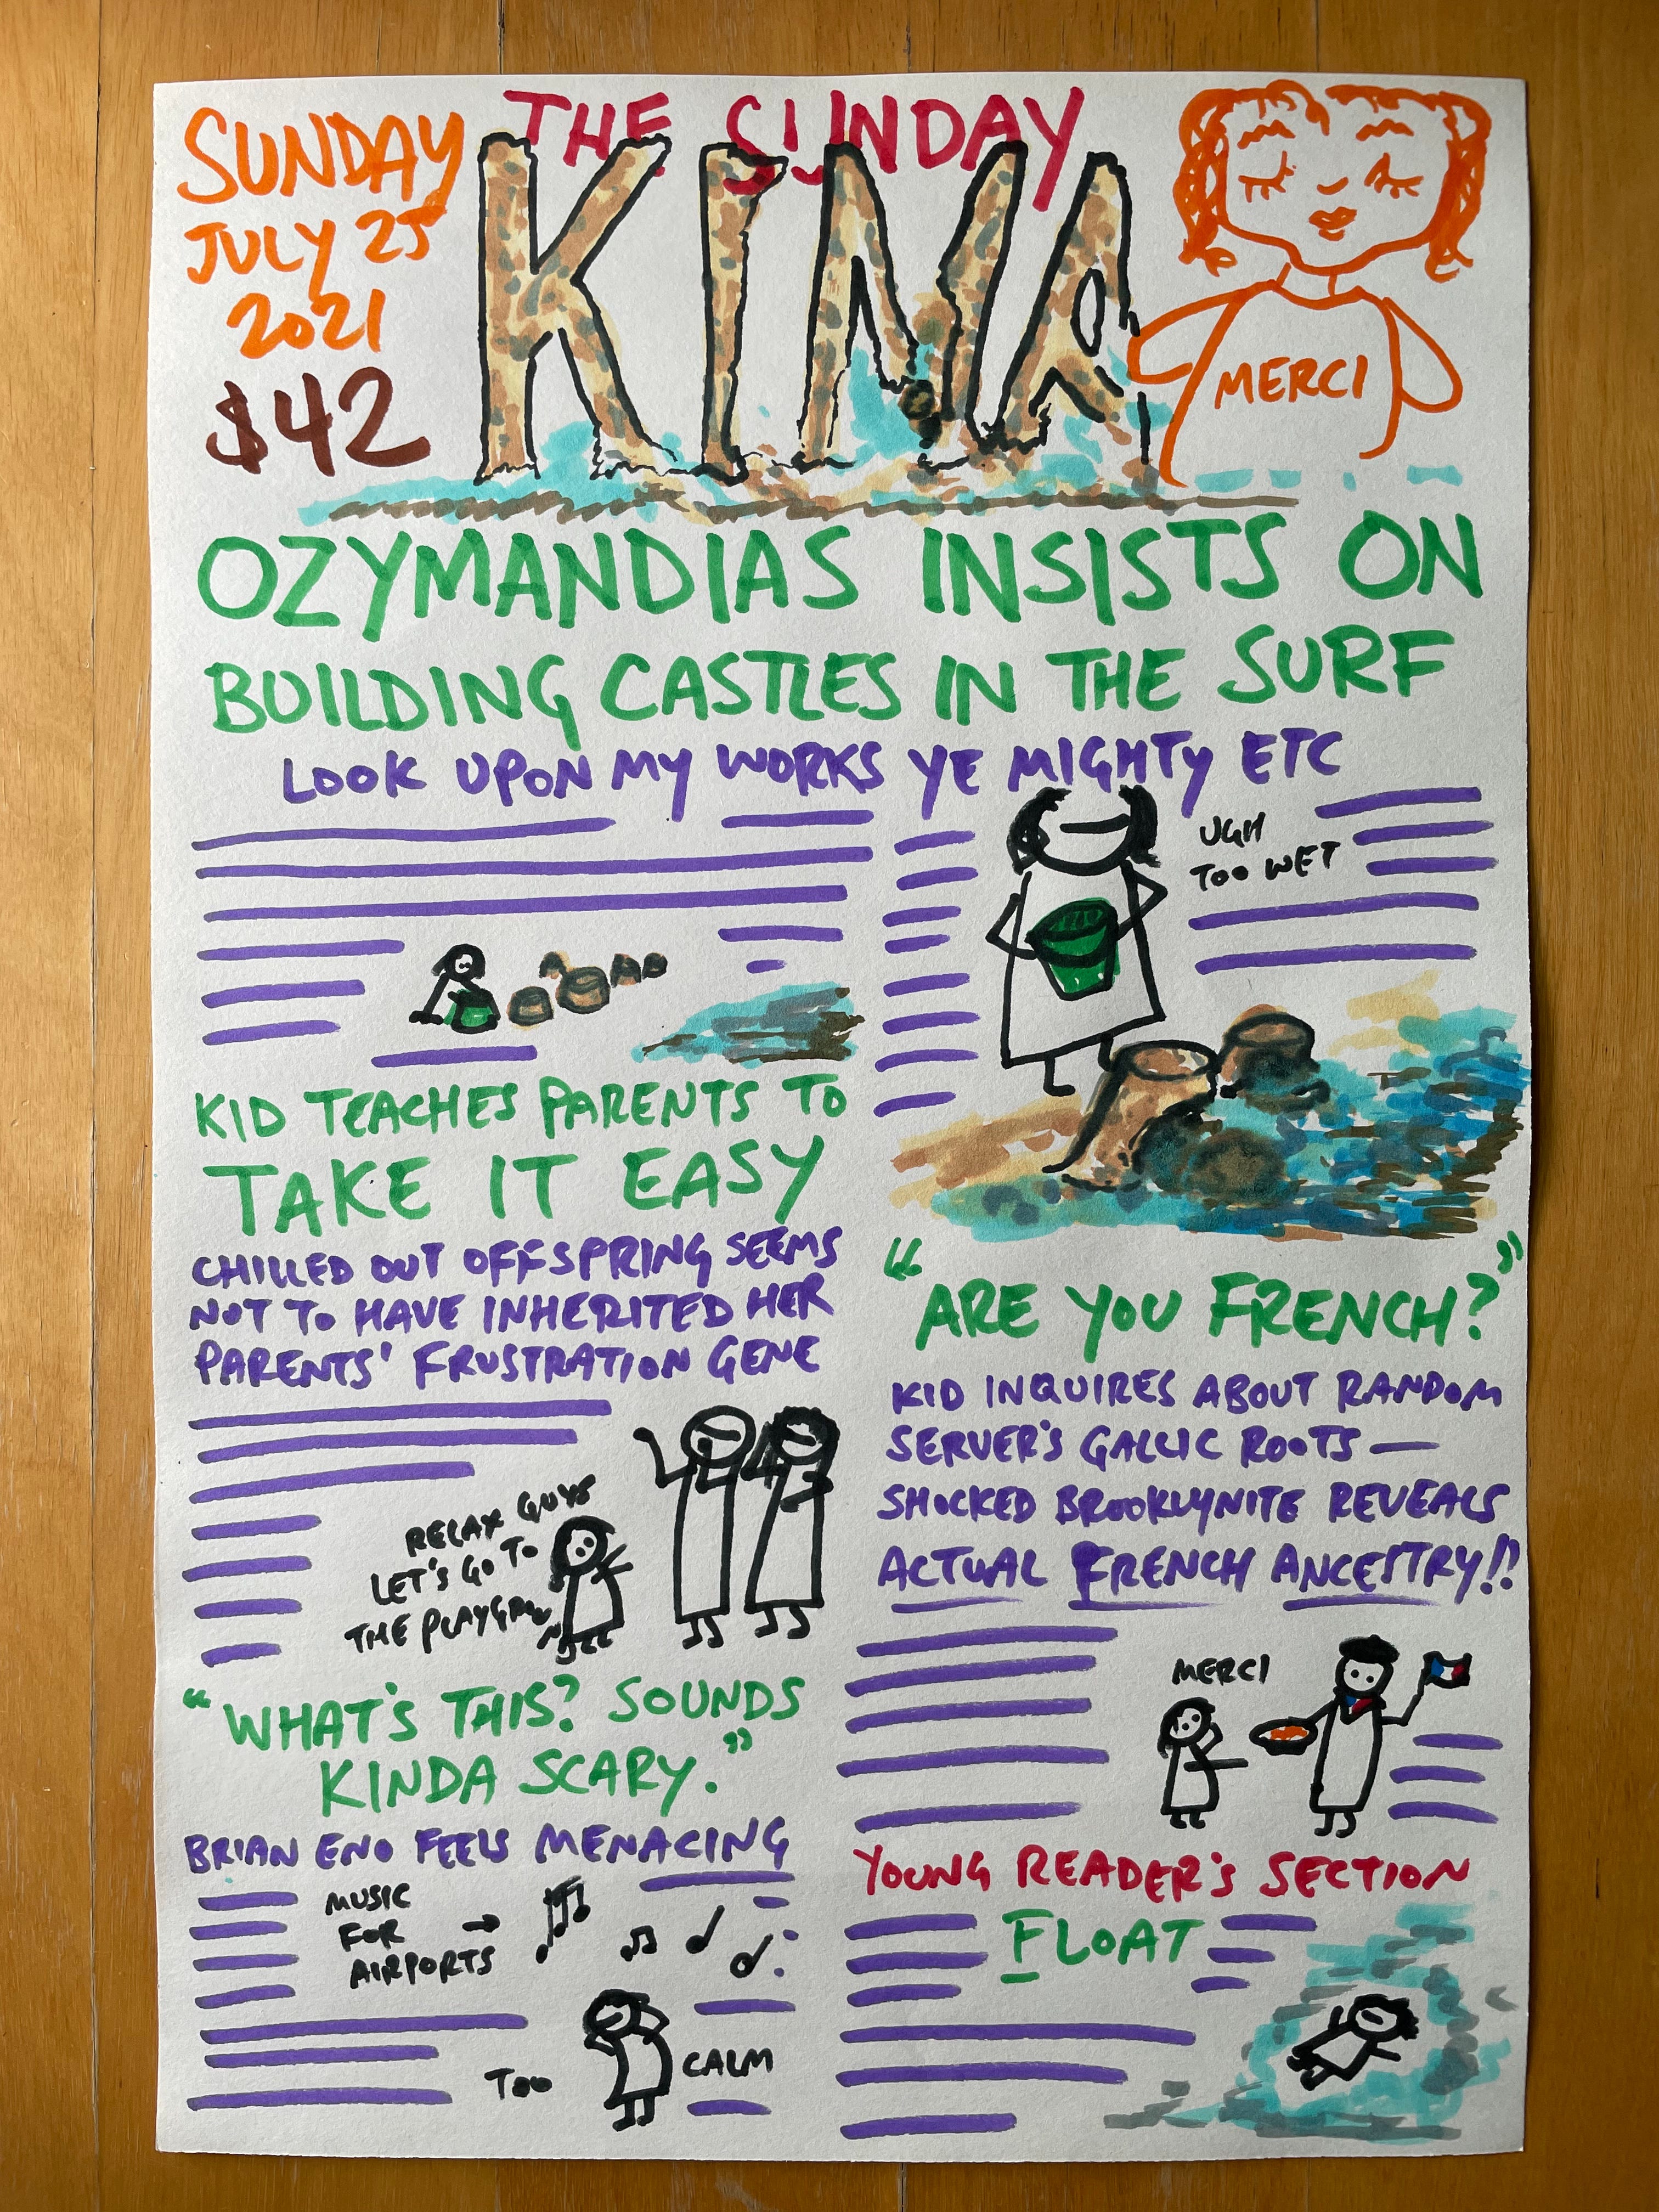 SUNDAY
JULY 25
2021
$42
THE SUNDAY
KIMA
MERCI
OZYMANDIAS INSISTS ON
BUILDING CASTLES IN THE SURF
LOOK UPON MY WORKS YE MIGHTY ETC
UGH
TOO WET
KID TEACHES PARENTS TO
TAKE IT EASY
CHILLED OUT OFFSPRING SEEMS
NOT TO HAVE INHERITED HER
PARENTS' FRUSTRATION GENE
RELAX GUYS
LET'S GO TO
THE PLAYGROUND
"WHAT'S THIS? SOUNDS
KINDA SCARY."
BRIAN ENO FEELS MENACING
MUSIC
FOR →
AIRPORTS
TOO CALM
"ARE YOU FRENCH?"
KID INQUIRES ABOUT RANDOM
SERVER'S GALLIC ROOTS —
SHOCKED BROOKLYNITE REVEALS
ACTUAL FRENCH ANCESTRY!!
MERCI
YOUNG READER'S SECTION
FLOAT